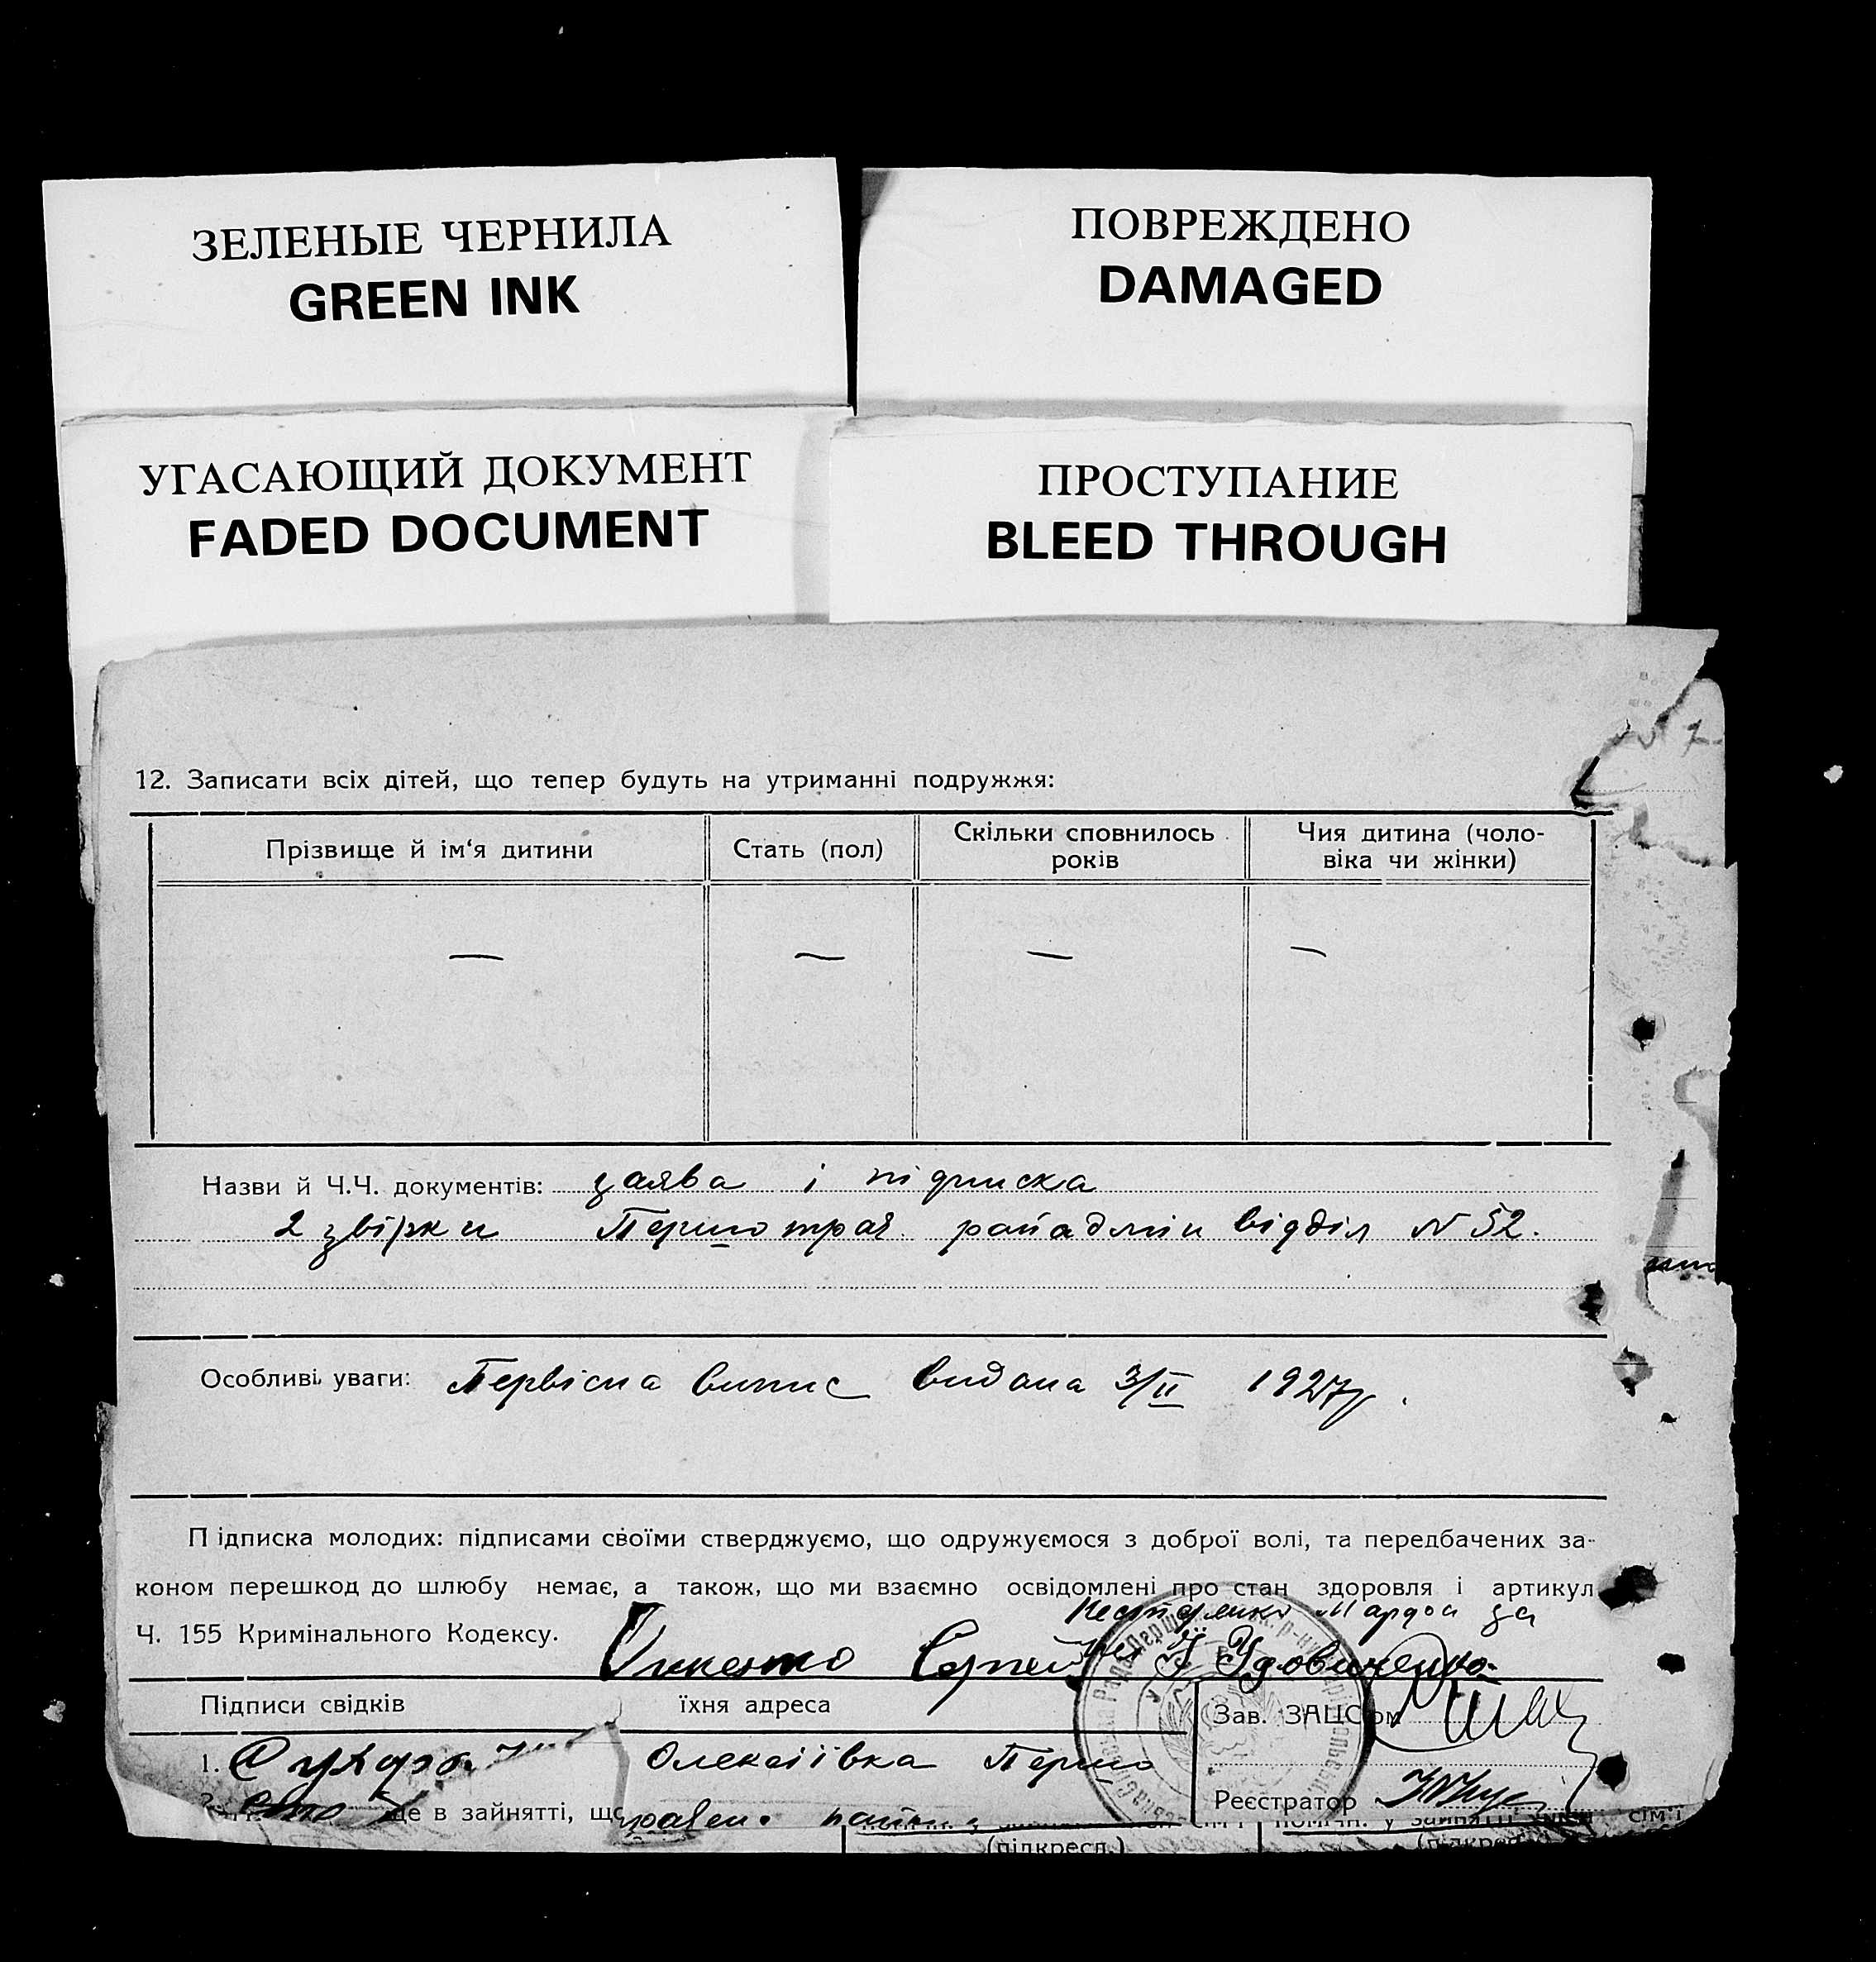 ЗЕЛЕНЫЕ ЧЕРНИЛА
GREEN INK
ПОВРЕЖДЕНО
DAMAGED
УГАСАЮЩИЙ ДОКУМЕНТ
FADED DOCUMENT
ПРОСТУПАНИЕ
BLEED THROUGH
12. Записати всіх дітей, що тепер будуть на утриманні подружжя:
Прізвище й ім‘я дитини
Стать (пол)
Скільки сповнилось років
Чия дитина (чоло-
віка чи жінки)
— — — —
Назви й Ч.Ч. документів: заява і підписка
2 звірки Першотрав. райадмін відділ № 52.
Особливі уваги: Первісна випис видана 3/II 1927р.
Підписка молодих: підписами своїми стверджуємо, що одружуємося з доброї волі, та передбачених за-
коном перешкод до шлюбу немає, а також, що ми взаємно освідомлені про стан здоровля і артикул
Ч. 155 Кримінального Кодексу.
Марфа за
Сергей Удовиченко
Підписи свідків їхня адреса
Зав. ЗАЦС'ом
1. Олексіївка Першо
2. равен. район
Реєстратор
де в зайнятті, що
помічн. у зайнятті сім‘ї
(підкресл.)